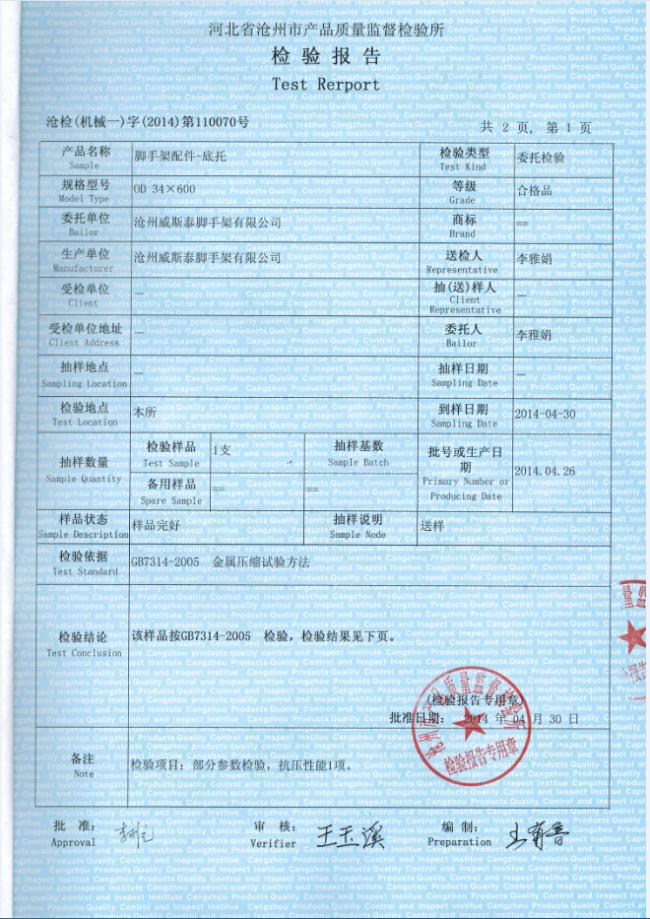 河北省沧州市产品质量监督检验所
检验报告
Test Rerport
沧检(机械一)字(2014)第110070号
共 2 页, 第 1 页
产品名称 脚手架配件-底托 检验类型 委托检验
Sample Test Kind
规格型号 OD 34×600 等级 合格品
Model Type Grade
委托单位 沧州威斯泰脚手架有限公司 商标 ==
Bailor Brand
生产单位 沧州威斯泰脚手架有限公司 送检人 李雅娟
Manufacturer Representative
受检单位 — 抽(送)样人 —
Client Client
Representative
受检单位地址 — 委托人 李雅娟
Client Address Bailor
抽样地点 — 抽样日期 —
Sampling Location Sampling Date
检验地点 本所 到样日期 2014-04-30
Test Location Sampling Date
抽样数量 检验样品 1支 抽样基数 批号或生产日期 2014.04.26
Sample Quantity Test Sample Sample Batch Primary Number or
备用样品 == == Producing Date
Spare Sample
样品状态 样品完好 抽样说明 送样
Sample Description Sample Node
检验依据 GB7314-2005 金属压缩试验方法
Test Standard
检验结论 该样品按GB7314-2005 检验，检验结果见下页。
Test Conclusion
(检验报告专用章)
批准日期： 2014 年 04 月 30 日
检验报告专用章
备注 检验项目：部分参数检验，抗压性能1项。
Note
批 准： 审 核： 王玉溪 编 制：
Approval Verifier Preparation